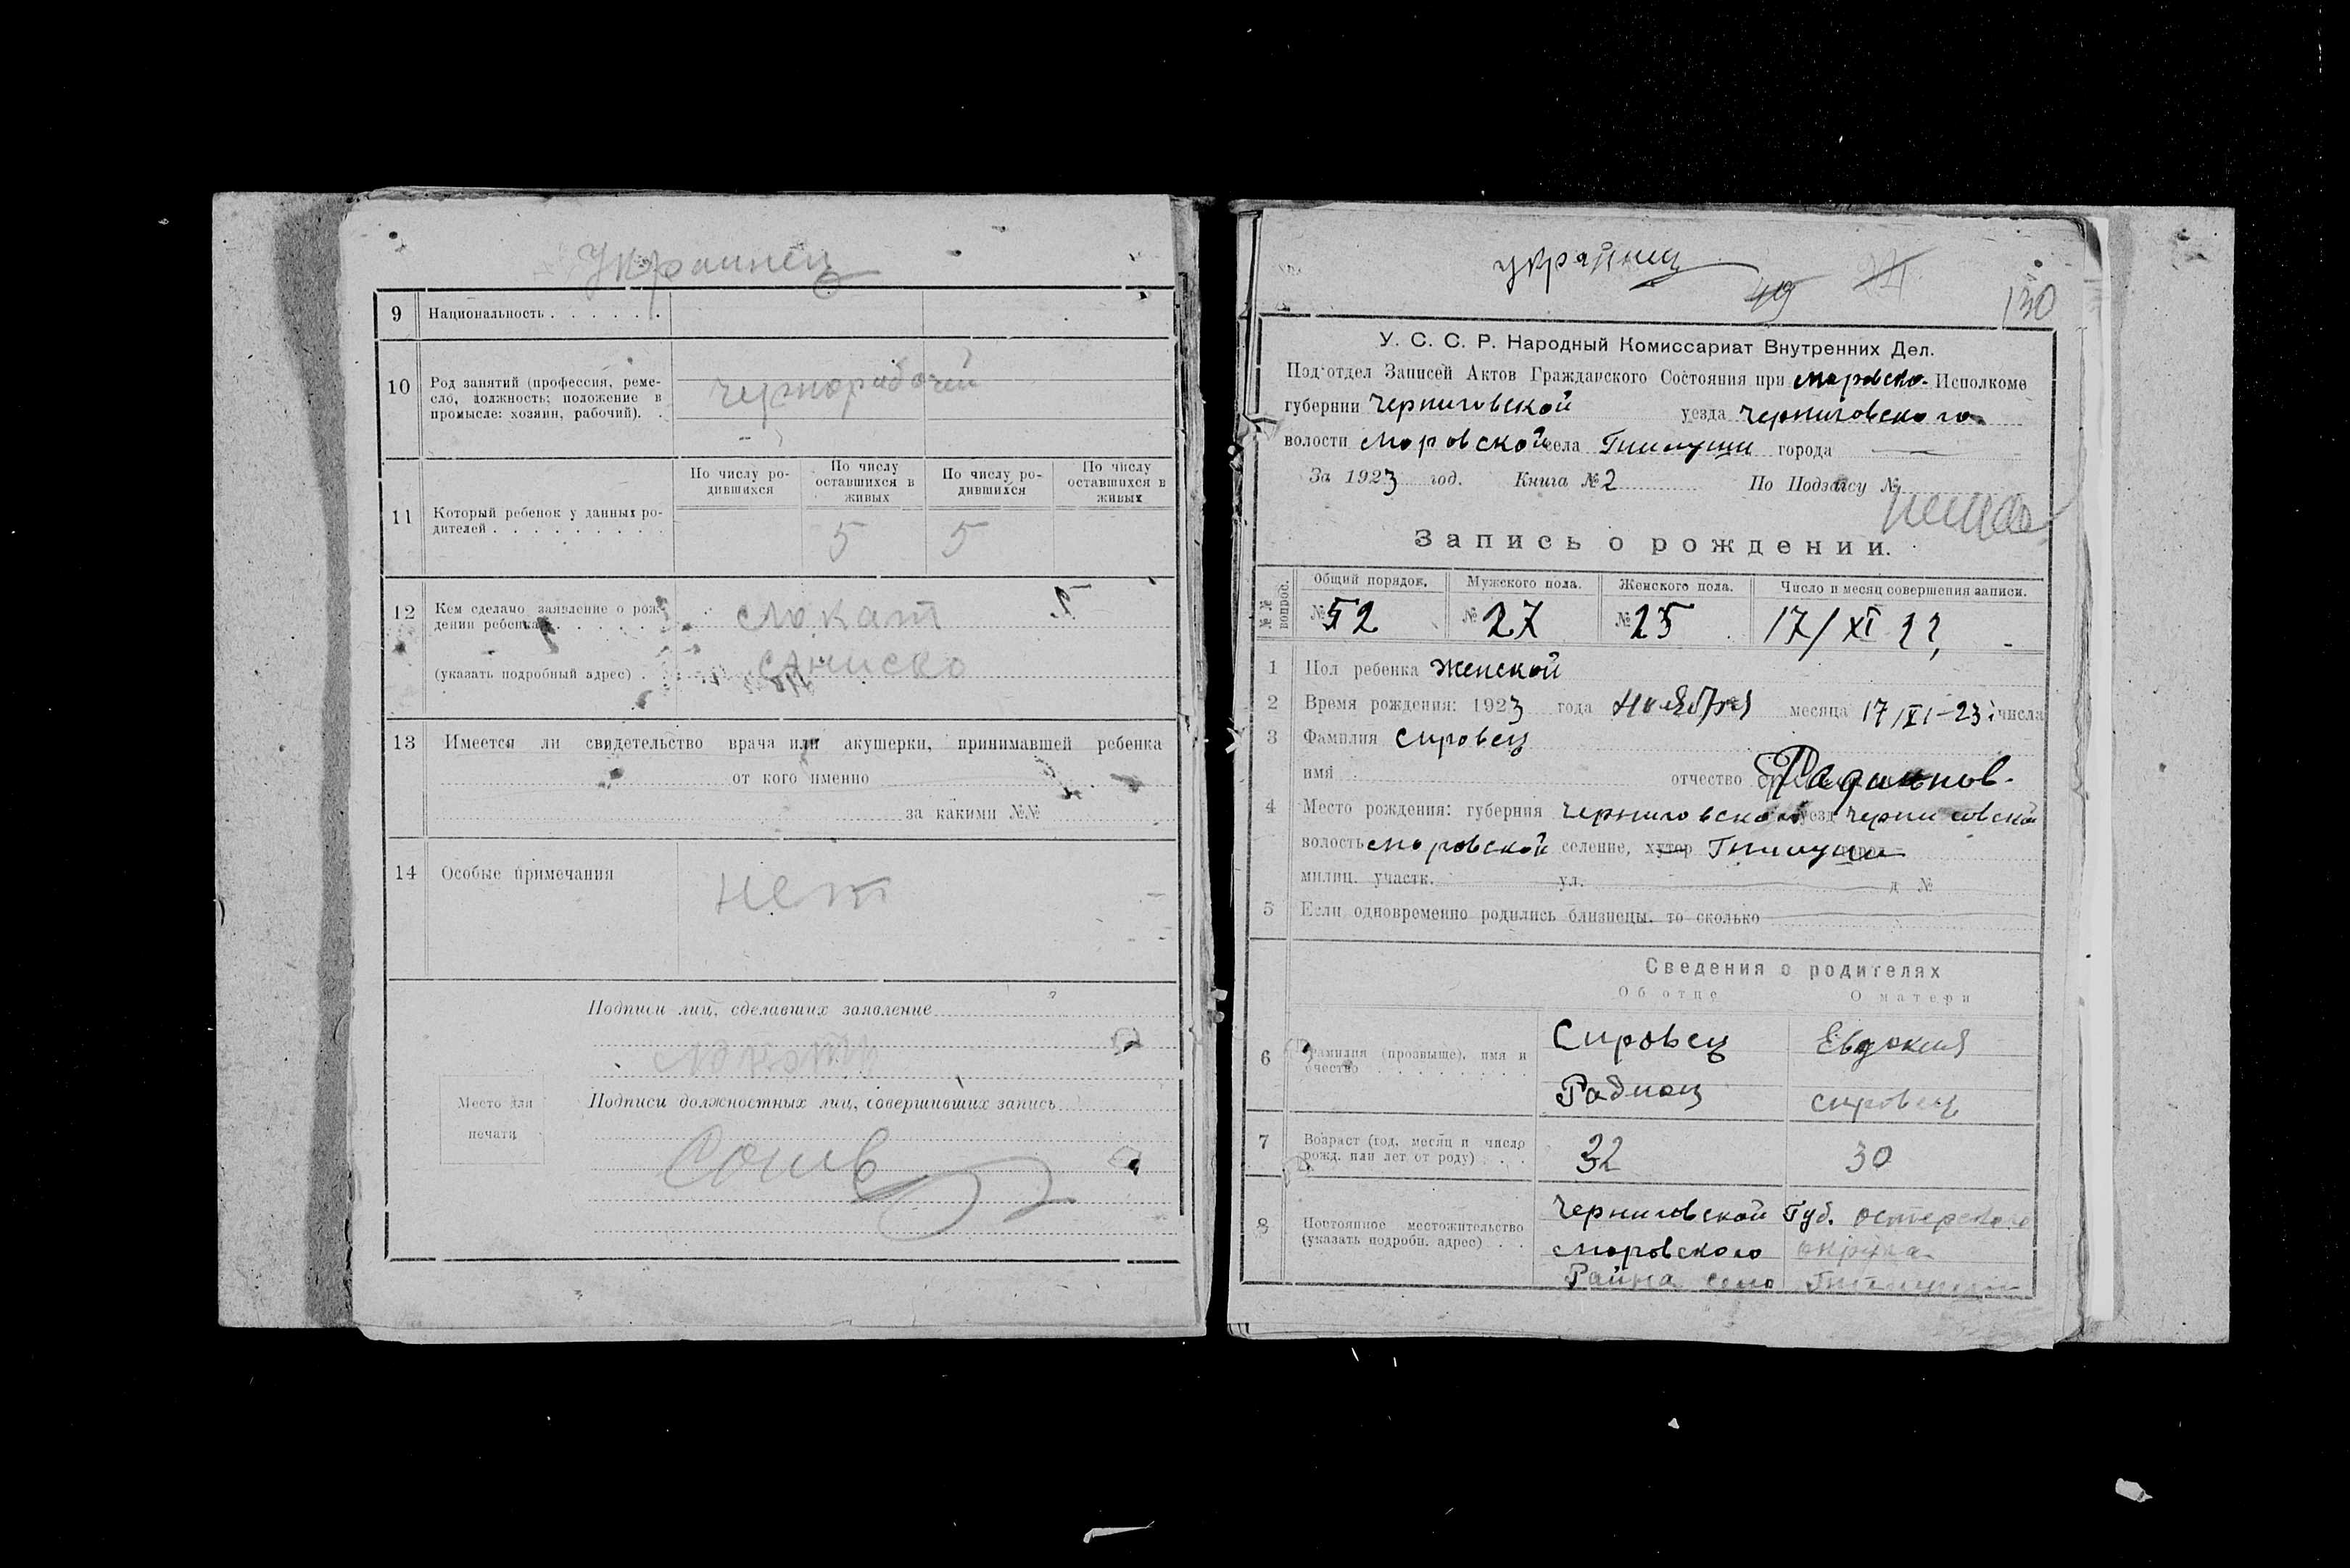 Украинец
9 Национальность . . . . . .
10 Род занятий (профессия, реме-
сло, должность; положение в
промысле: хозяин, рабочий). .
чернорабочий
По числу ро-
дившихся
По числу
оставшихся в
живых
По числу ро-
дившихся
По числу
оставшихся в
живых
11 Который ребенок у данных ро-
дителей . . . . . . . . .
5 5
12 Кем сделано заявление о рож-
дении ребенка
(указать подробный адрес) .
13 Имеется ли свидетельство врача или акушерки, принимавшей ребенка
от кого именно
за какими №№
14 Особые примечания
нет
Подписи лиц, сделавших заявление
Место для
печати
Подписи должностных лиц, совершивших запись
украинец
49
130
У. С. С. Р. Народный Комиссариат Внутренних Дел.
Под'отдел Записей Актов Гражданского Состояния при Моровско- Исполкоме
губернии Черниговской уезда Черниговского
волости Моровской села города
За 1923 год. Книга № 2 По Подзагсу №
Запись о рождении.
№№ вопрос.
Общий порядок. Мужского пола. Женского пола. Число и месяц совершения записи.
№ 52 № 27 № 25 17/XI
1 Пол ребенка Женской
2 Время рождения: 1923 года Ноября месяца 17/XI-23 числа
3 Фамилия Сировец
имя отчество
4 Место рождения: губерния Черниговской уезд Черниговской
волость Моровской селение, хутор
милиц. участк. ул. д №
5 Если одновременно родились близнецы, то сколько
Сведения о родителях
Об отце О матери
6 Фамилия (прозвище), имя и
отчество . . . . . . . .
Сировец
Радион
Евдокия
Сировец
7 Возраст (год, месяц и число
рожд. или лет от роду) . . .
32 30
8 Постоянное местожительство
(указать подробн. адрес) . .
Черниговской Губ. Остерского
Моровского округа
Района село